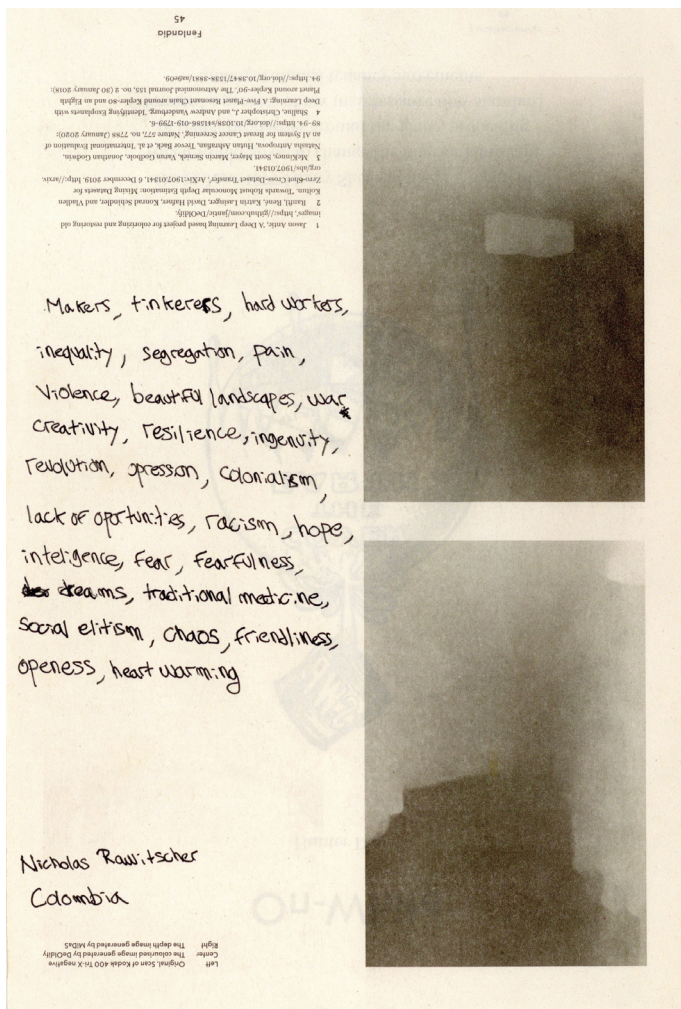 1 Jason Antic, 'A Deep Learning based project for colorizing and restoring old
images', https://github.com/jantic/DeOldify.
2 Ranftl, René, Katrin Lasinger, David Hafner, Konrad Schindler, and Vladlen
Koltun. 'Towards Robust Monocular Depth Estimation: Mixing Datasets for
Zero-Shot Cross-Dataset Transfer'. ArXiv:1907.01341, 6 December 2019. http://arxiv.
org/abs/1907.01341.
3 McKinney, Scott Mayer, Marcin Sieniek, Varun Godbole, Jonathan Godwin,
Natasha Antropova, Hutan Ashrafian, Trevor Back, et al. 'International Evaluation of
an AI System for Breast Cancer Screening'. Nature 577, no. 7788 (January 2020):
89–94. https://doi.org/10.1038/s41586-019-1799-6.
4 Shallue, Christopher J., and Andrew Vanderburg. 'Identifying Exoplanets with
Deep Learning: A Five-Planet Resonant Chain around Kepler-80 and an Eighth
Planet around Kepler-90'. The Astronomical Journal 155, no. 2 (30 January 2018):
94. https://doi.org/10.3847/1538-3881/aa9e09.
Fenlandia
45
Makers, tinkerers, hard workers,
inequality, segregation, pain,
Violence, beautiful landscapes, war
creativity, resilience, ingenuity,
revolution, opression, colonialism,
lack of oportunities, racism, hope,
inteligence, fear, fearfulness,
dreams, traditional medicine,
social elitism, chaos, friendliness,
openess, heart warming
Nicholas Rawitscher
Colombia
Left Original. Scan of Kodak 400 Tri-X negative
Center The colourised image generated by DeOldify
Right The depth image generated by MiDaS